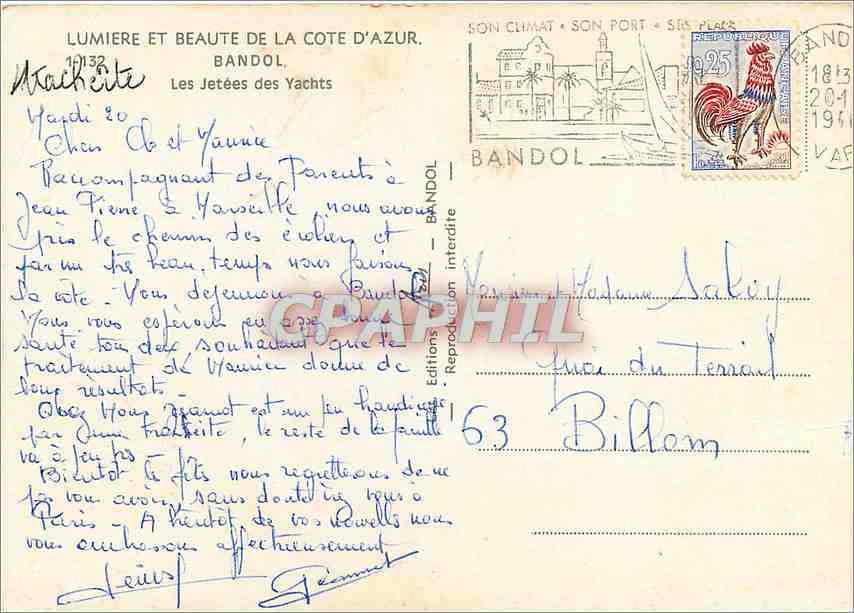 LUMIERE ET BEAUTE DE LA COTE D'AZUR.
10132 BANDOL
Les Jetées des Yachts
trachéite
Mardi 20
Chers et Maurice
Raccompagnant des Parents à
Jean Pierre à Marseille nous avons
pris le chemin des écoliers et
par un très beau temps nous faisons
la côte - Nous déjeunons à Bandol
Nous vous espérons en assez bonne
santé tous deux souhaitant que le
traitement de Maurice donne de
bons résultats -
Chez Nous Jeannot est un peu handicapé
par une trachéite, le reste de la famille
va à peu près -
Bientôt les fêtes nous regretterons de ne
pas vous avoir, sans doute irez vous à
Paris - A bientôt de vos nouvelles nous
vous embrassons affectueusement
Jeannot
Editions - BANDOL
Reproduction interdite
SON CLIMAT • SON PORT • SES PLAGES
BANDOL
REPUBLIQUE FRANÇAISE
0,25
BANDOL
18H3
20-1
19
VAR
Monsieur et Madame Salvy
Quai du Terrail
63 Billom
CPAPHIL